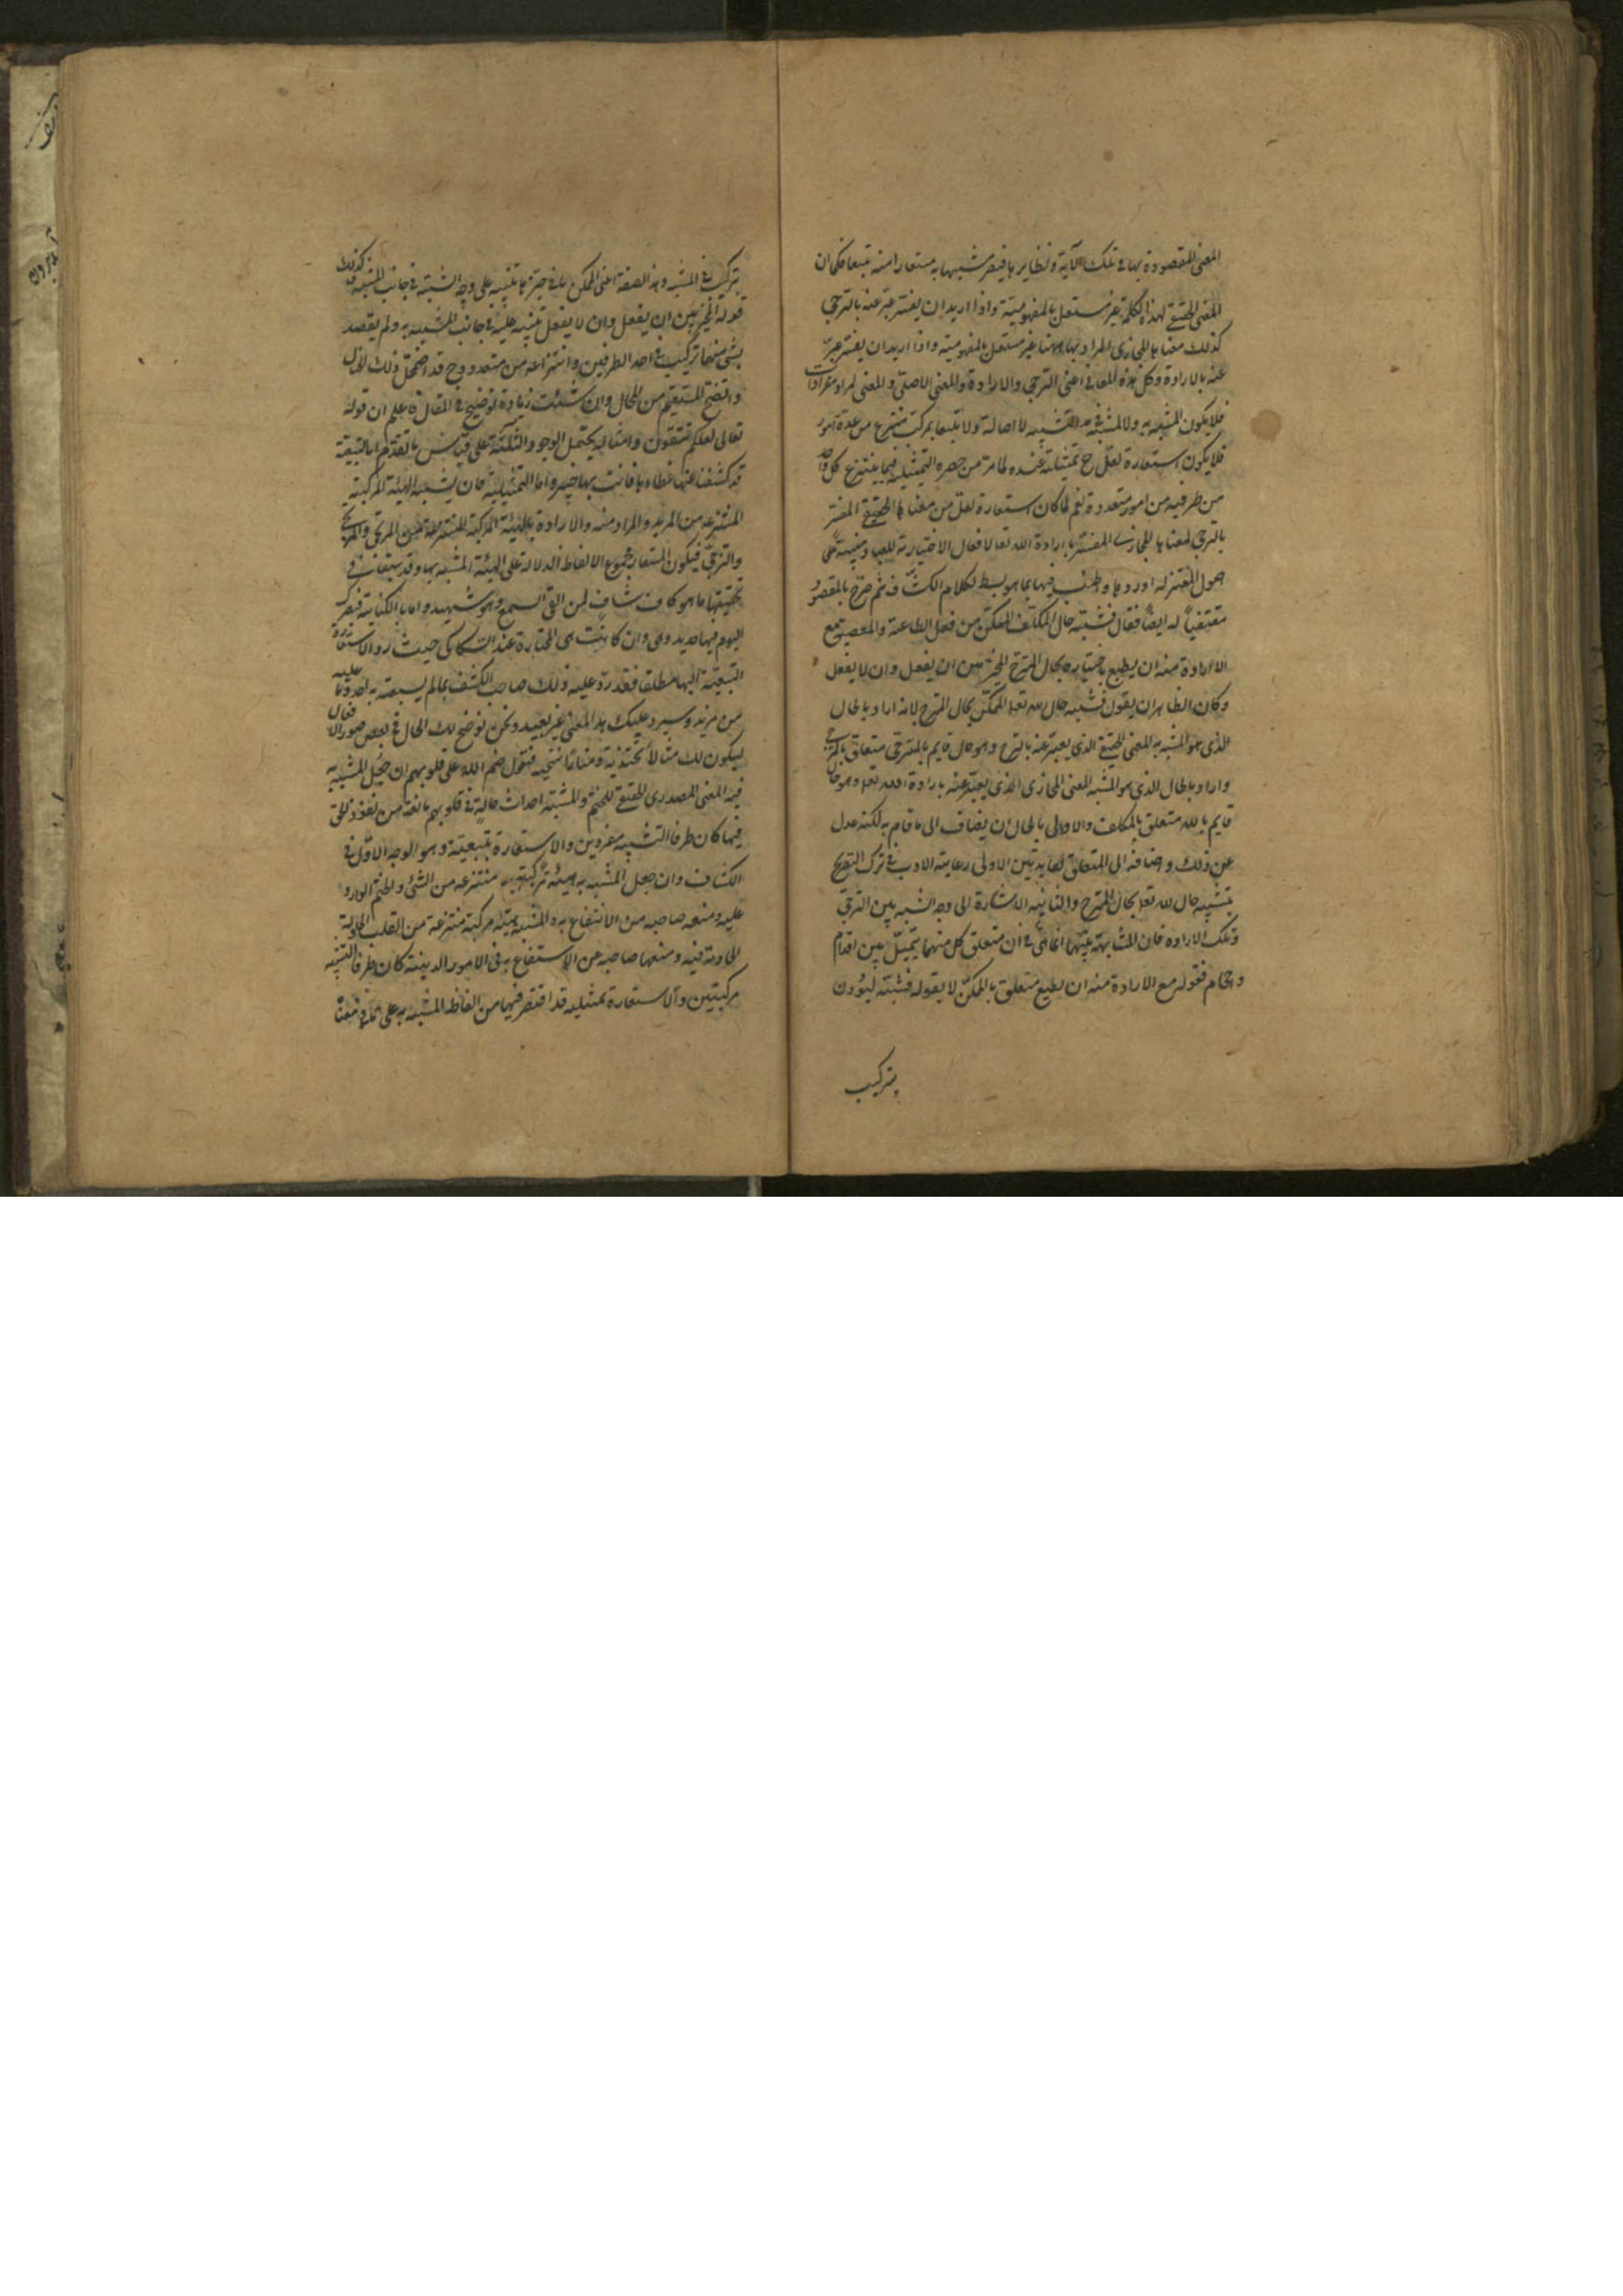 المعنى المقصودة بها في تلك الآية ونظايرها فيصير مشبها به مستعارا منه تبعا فكما ان
المعنى الحقيقي لهذه الكلمة غير مستقل بالمفهومية واذا اريد ان يفسر عبر عنه بالترجي
كذلك معناها المجازي المراد بها ههنا غير مستقل بالمفهومية واذا اريد ان يفسر عبر
عنه بالارادة وكل هذه المعاني اعني الترجي والارادة والمعنى الاصلي والمعنى المراد مفردات
فلا يكون المشبه به ولا المشبه في هذا التشبيه لا اصالة ولا تبعا بمركب منتزع من عدة امور
فلا يكون استعارة لعل ح تمثيلية عنده لما مر من حصره التمثيلية فيما ينتزع كل واحد
من طرفيه من امور متعددة نعم لما كان استعارة لعل من معناها الحقيقي المفسر
بالترجي لمعناها المجازي المفسر بارادة الله تعالى الافعال الاختيارية للعباد مبنية على
اصول المعتزلة اوردها واطنب فيها بما هو بسط لكلام الكشاف ثم صرح بالمقصود
مقتفيا له ايضا فقال فشبه حال المكلف الممكن من فعل الطاعة والمعصية مع
الارادة منه ان يطيع باختياره بحال المترجي المخير بين ان يفعل وان لا يفعل
وكان الظاهر ان يقول فشبه حال الله تعالى الممكن بحال المترجي لانه اراد بالحال
الذي هو المشبه به المعنى الحقيقي الذي يعبر عنه بالترجي وهو حال قايم بالمترجي متعلق بالمترجى
واراد بالحال الذي هو المشبه المعنى المجازي الذي يعبر عنه بارادة الله تعالى وهو حال
قايم بالله متعلق بالمكلف والاولى بالحال ان يضاف الى ما قام به لكنه عدل
عن ذلك واضافه الى المتعلق لفايدتين الاولى رعاية الادب في ترك التصريح
بتشبيه حال الله تعالى بحال المترجي والثانية الاشارة الى وجه الشبه بين الترجي
وتلك الارادة فان المشابهة بينهما انما هي في ان متعلق كل منهما يتميل بين اقدام
واحجام فقوله مع الارادة منه ان يطيع متعلق بالممكن لا بقوله فشبه ليؤذن
بتركيب
بتركيب في المشبه وهذه الصفة اعني الممكن بما في حيزها تنبيه على وجه الشبه في جانب المشبه كذلك
قوله المخير بين ان يفعل وان لا يفعل تنبيه عليه في جانب المشبه به ولم يقصد
بشئ منهما تركيب في احد الطرفين وانتزاعه من متعدد وح قد اضمحل ذلك الخيال
واتضح المستقيم من المحال وان شئت زيادة توضيح في المقال فاعلم ان قوله
تعالى لعلكم تتقون وامثاله يحتمل الوجوه الثلثة على قياس ما تقدم اما التبعية
قد كشفنا عنها غطاءها فانت بها خبير واما التمثيلية فان تشبه الهيئة المركبة
المنتزعة من المريد والمراد منه والارادة بالهيئة المركبة المنتزعة من المترجي والمترجى
والترجي فيكون المستعار مجموع الالفاظ الدالة على الهيئة المشبه بها وقد سبقت في
تحقيقها ما هو كاف شاف لمن القى السمع وهو شهيد واما بالكناية فبصرك
اليوم فيها حديد وهي وان كانت هي المختارة عند السكاكي حيث رد الاستعارة
التبعية اليها مطلقا فقد رد عليه ذلك صاحب الكشف بما لم يسبقه به احد وما عليه
من مزيد وسيرد عليك هذا المعنى غير بعيد ونحن نوضح لك الحال في بعض صور الافعال
ليكون لك مثالا تحتذيه ومنارا تنتحيه فنقول ختم الله على قلوبهم ان جعل المشبه به
فيه المعنى المصدري الحقيقي للختم والمشبه احداث حالة في قلوبهم مانعة من نفوذ الحق
فيها كان طرفا التشبيه مفردين والاستعارة تبعية وهو الوجه الاول في
الكشاف وان جعل المشبه به هيئة مركبة منتزعة من الشئ والختم الوارد
عليه ومنعه صاحبه من الانتفاع به والمشبه هيئة مركبة منتزعة من القلب والحالة
الحادثة فيه ومنعها صاحبه عن الاستنفاع به في الامور الدينية كان طرفا التشبيه
مركبتين والاستعارة تمثيلية قد اقتصر فيها من الفاظ المشبه به على ما في معناه